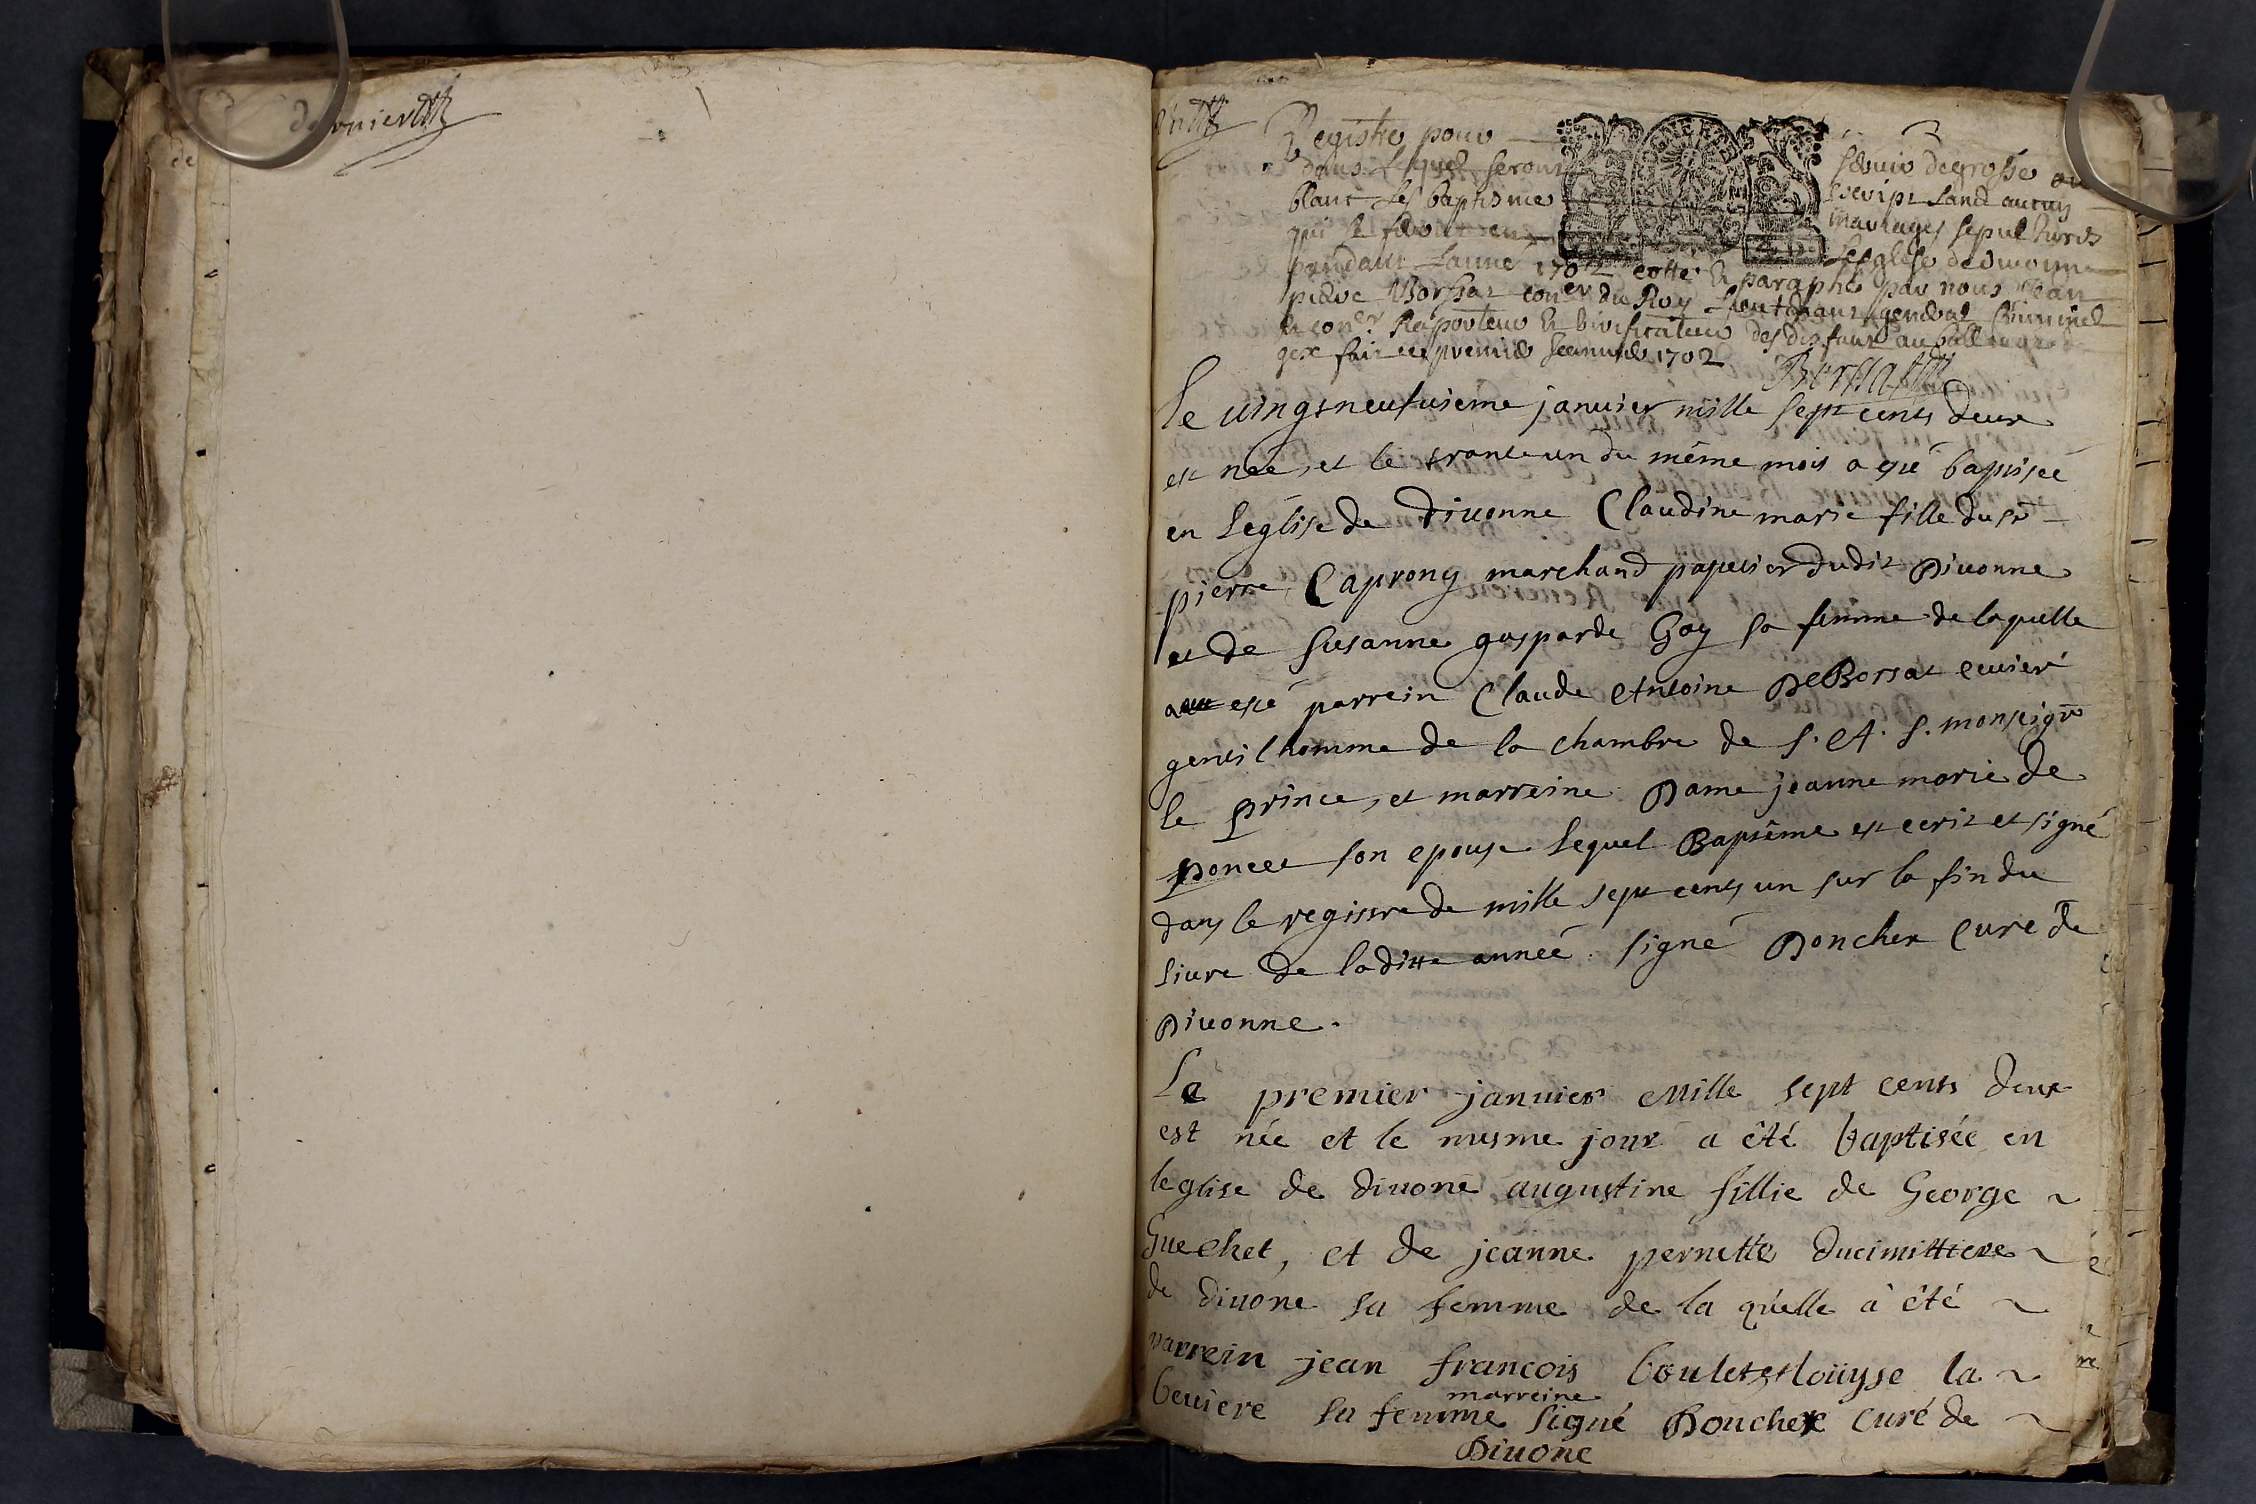 dernier
de
Registre pour servir de grosse
dans lequel seront escript sand aucun
blanc les baptesme mariages sepultures
qui se feront en Lesglise de divonne
pendant Lanne 1702 cotté & paraphé par nous Jean
pierre Borssat coner du Roy Lieutenant general Criminel
& coner Raporteur & verificateur des defaux au
gex fait ce premier Jeanvier 1702
Borssat
le vingtneufvieme janvier mille sept cents deux
est neé, et le trante un du même mois a eté baptiseé
en leglise de Divonne Claudine marie fille du sr
pierre Caprony marchand papetier dudit Divonne
et de Susanne gasparde Gay sa femme de laquelle
a esté parrein Claude Antoine De Borsat ecuier
gentilhomme de la chambre de S. A. S. monseigr
le prince, et marreine Dame jeanne marie de
poncet son epouse lequel Baptême est ecrit et signé
dans le registre de mille sept cents un sur la fin du
livre de laditte anneé. signé Doncher Curé de
Divonne.
Le premier janvier Mille sept cents deux
est née et le mesme jour a êté baptisée en
leglise de divone augustine fillie de George ~
Guechet, et de jeanne pernette ducimittiere ~
de divone sa femme de la quelle à êté ~
parrein jean francois boulet et loüyse la ~
beviere sa femme marreine signé Doucher curé de ~
Divone